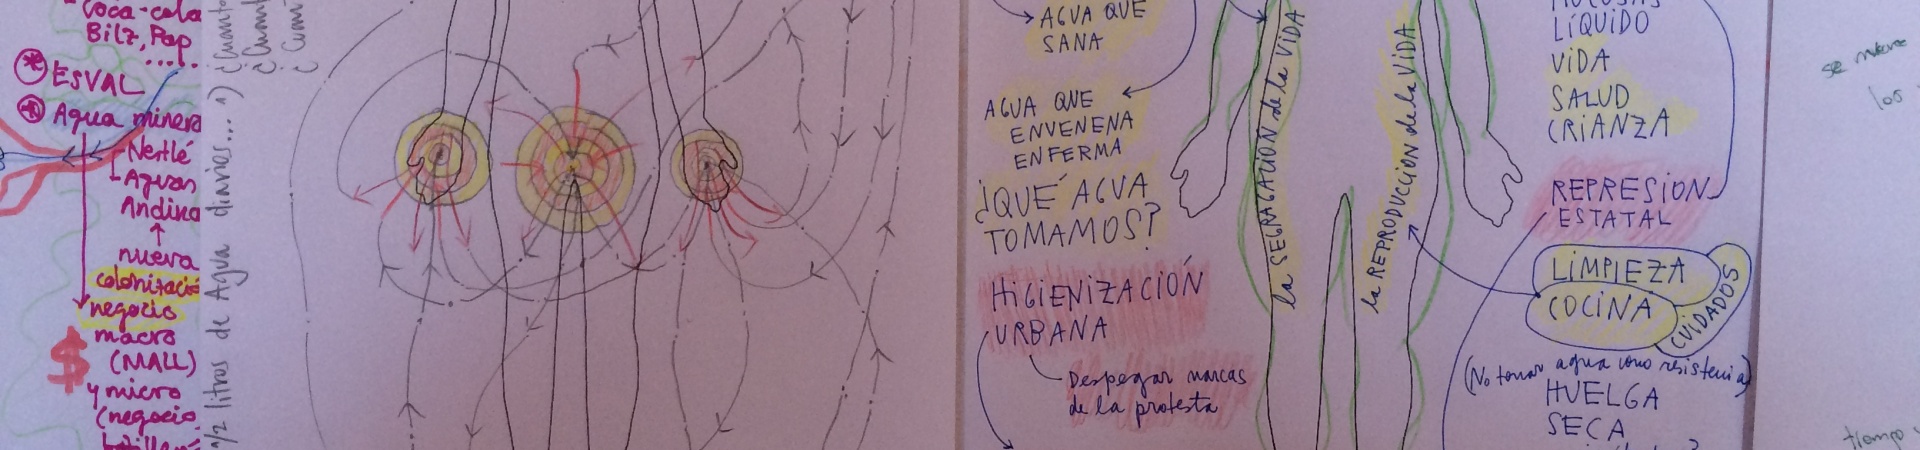 - Coca-cola
Bilz, Pap
....
* ESVAL
* Agua minera
- Nestlé
- Aguas
Andina
nueva
colonizació
negocio
macro
(MALL)
$
y micro
(negocio
1/2 litros de Agua diarios... 1) ¿Cuanto
¿Cuant
¿Cuan
AGUA QUE
SANA
AGUA QUE
ENVENENA
ENFERMA
¿QUÉ AGUA
TOMAMOS?
HiGiENiZACIÓN
URBANA
Despegar marcas
de la protesta
la SEGRAGACIÓN de la VIDA
la REPRODUCCIÓN de la VIDA
MUCOSAS
LÍQUIDO
ViDA
SALUD
CRiANZA
REPRESION
ESTATAL
LiMPiEZA
COCiNA
CUIDADOS
(No tomar agua como resistencia)
HUELGA
SECA
se mueve
los
tiempo y